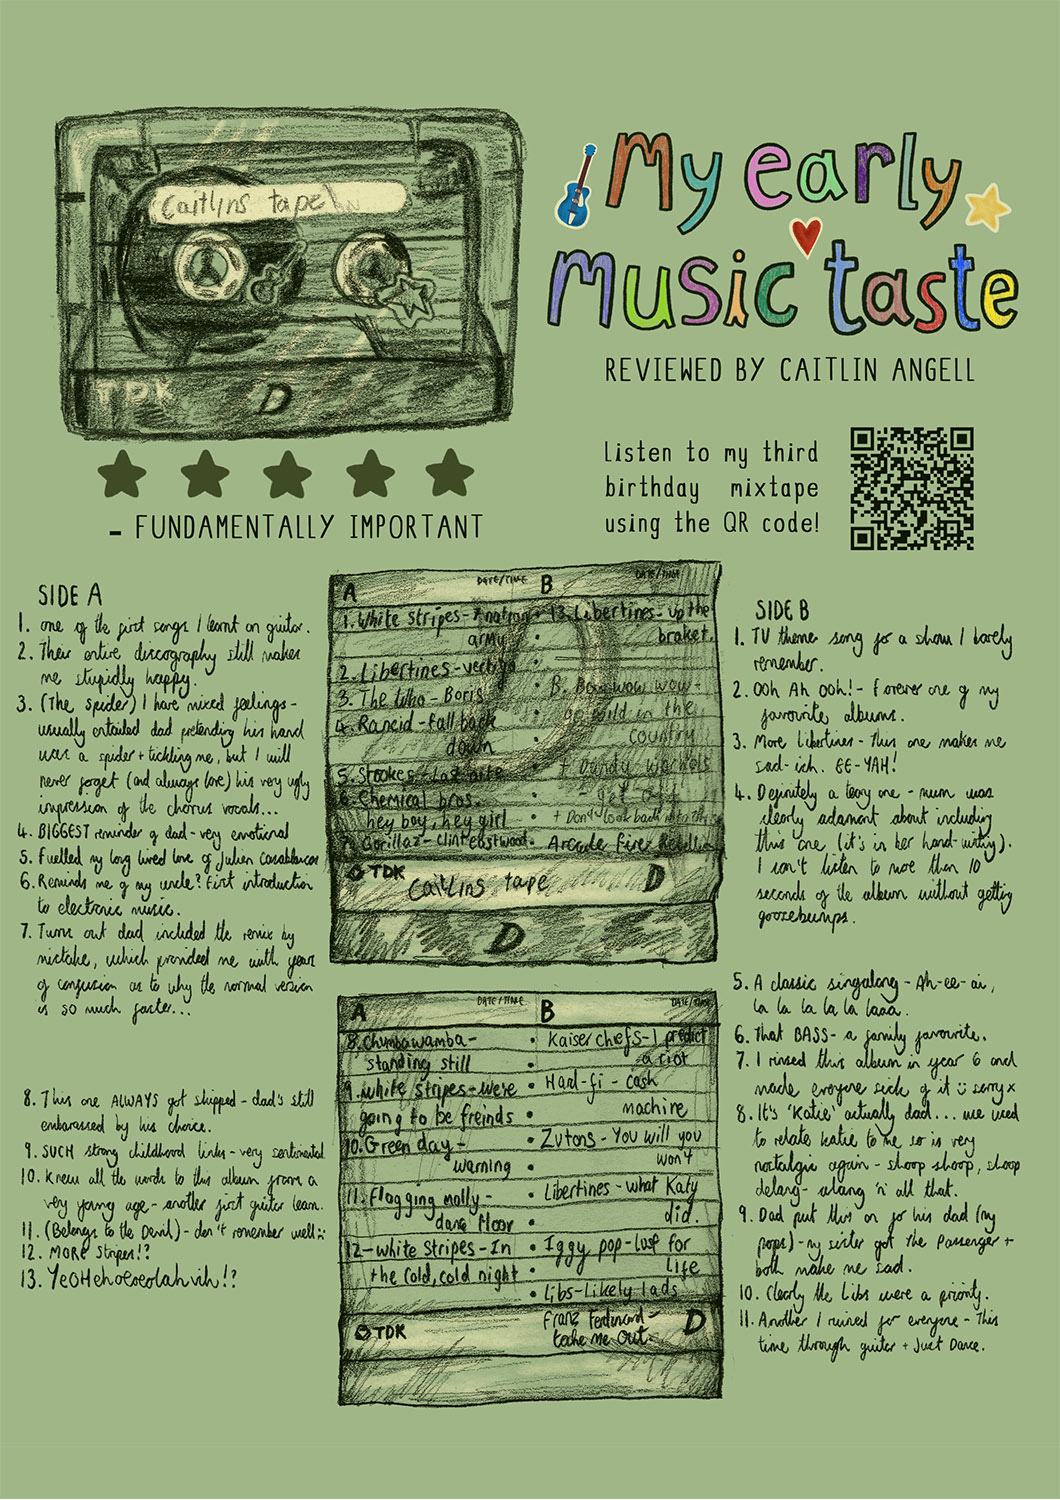 Caitlins tape
TDK D
My early
music taste
REVIEWED BY CAITLIN ANGELL
- FUNDAMENTALLY IMPORTANT
Listen to my third
birthday mixtape
using the QR code!
SIDE A
1. one of the first songs I learnt on guitar.
2. Their entire discography still makes
me stupidly happy.
3. (The spider) I have mixed feelings -
usually entailed dad pretending his hand
was a spider + tickling me, but I will
never forget (and always love) his very ugly
impression of the chorus vocals...
4. BIGGEST reminder of dad - very emotional
5. Fuelled my long lived love of Julien Casablancas
6. Reminds me of my uncle! First introduction
to electronic music.
7. Turns out dad included the remix by
mistake, which provided me with years
of confusion as to why the normal version
is so much faster...
8. This one ALWAYS got skipped - dad's still
embarassed by his choice.
9. SUCH strong childhood links - very sentimental
10. Knew all the words to this album from a
very young age - another first guitar learn.
11. (Belongs to the Devil) - don't remember well :
12. MORE Stripes!?
13.
A DATE/TIME B DATE/TIME
1. White Stripes - 7 nation
army
2. Libertines - vertigo
3. The Who - Boris
4. Rancid - fall back
down
5. Strookes - Last nite
6. Chemical bros.
hey boy, hey girl
7. Gorillaz - clint eastwood
13. Libertines - up the
braket.
B. Bow wow wow -
go wild in the
country
+ Dandy warhols
- get off
+ Don't look back into the
Arcade Fire Rebellion
TDK Caitlins tape D
D
A DATE/TIME B DATE/TIME
8. Chumbawamba -
standing still
9. White stripes - were
going to be freinds
10. Green day -
warning
11. Flogging molly -
12 - White Stripes - In
the cold, cold night
Kaiser chefs - I predict
a riot
Hard-fi - cash
machine
Zutons - You will you
won't
Libertines - what Katy
did.
Iggy pop - lust for
life
Libs - Likely lads
Franz Ferdinand -
take me out
TDK D
SIDE B
1. TV theme song for a show I barely
remember.
2. Ooh Ah Ooh! - Forever one of my
favourite albums.
3. More Libertines - this one makes me
sad - ich. EE-YAH!
4. Definitely a teary one - mum was
clearly adamant about including
this one (it's in her hand-writing).
I can't listen to more than 10
seconds of the album without getting
goosebumps.
5. A classic singalong - Ah-ee-ai,
la la la la la laaa.
6. That BASS - a family favourite.
7. I rinsed this album in year 6 and
made everyone sick of it sorry x
8. It's 'Katie' actually dad... we used
to relate Katie to me so is very
nostalgic again - shoop shoop, shoop
delang - alang 'n' all that.
9. Dad put this on for his dad (my
pops) - my sister got The Passenger +
both make me sad.
10. Clearly the Libs were a priority.
11. Another I ruined for everyone - This
time through guitar + Just Dance.